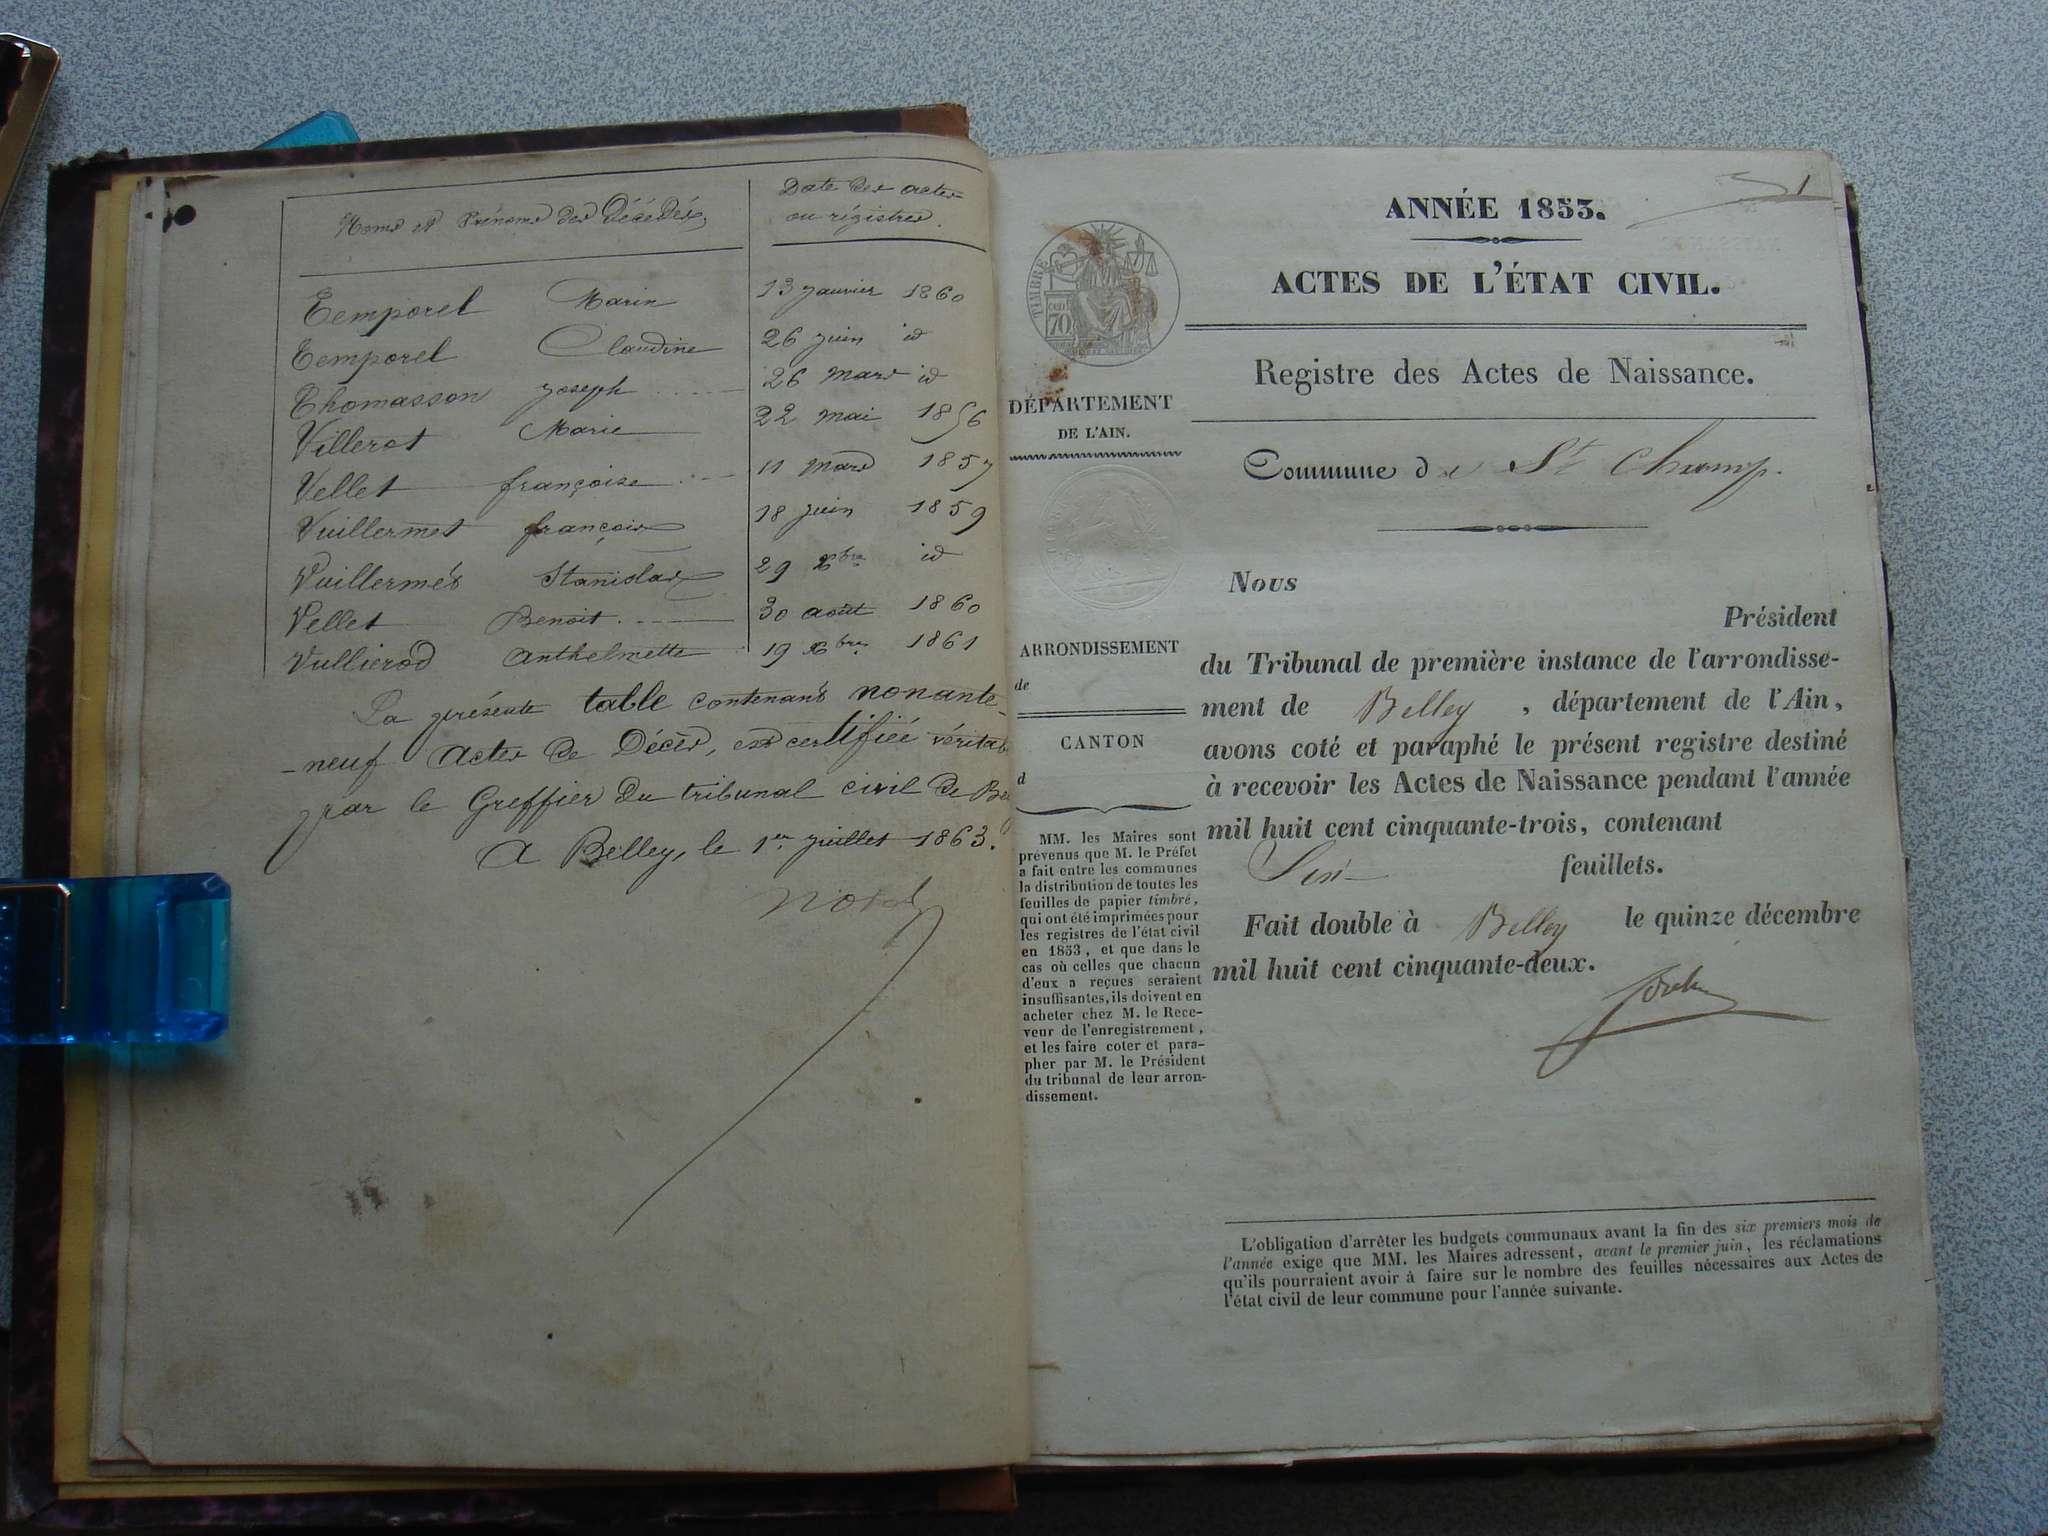 Noms et Prénoms des Décédés
Date des actes
ou régistres.
Temporel Marin 13 Janvier 1860
Temporel Claudine 26 juin id
Thomasson Joseph 26 mars id
Villerot Marie 22 mai 1856
Vellet françoise 11 mars 1857
Vuillermet françois 18 juin 1859
Vuillermet Stanislas 29 Xbre id
Vellet Benoit 30 août 1860
Vullierod Anthelmette 19 Xbre 1861
La présente table contenant nonante-
-neuf actes de Décès, est certifiée véritab
par le Greffier du tribunal civil de Be
A Belley, le 1er juillet 1863.
1
ANNÉE 1853.
ACTES DE L'ÉTAT CIVIL.
TIMBRE
70
Registre des Actes de Naissance.
DÉPARTEMENT
DE L'AIN.
Commune de St Champ.
Nous
Président
du Tribunal de première instance de l'arrondisse-
ment de Belley, département de l'Ain,
avons coté et paraphé le présent registre destiné
à recevoir les Actes de Naissance pendant l'année
mil huit cent cinquante-trois, contenant
Six feuillets.
Fait double à Belley le quinze décembre
mil huit cent cinquante-deux.
ARRONDISSEMENT
de
CANTON
d
MM. les Maires sont
prévenus que M. le Préfet
a fait entre les communes
la distribution de toutes les
feuilles de papier timbré,
qui ont été imprimées pour
les registres de l'état civil
en 1853, et que dans le
cas où celles que chacun
d'eux a reçues seraient
insuffisantes, ils doivent en
acheter chez M. le Rece-
veur de l'enregistrement,
et les faire coter et para-
pher par M. le Président
du tribunal de leur arron-
dissement.
L'obligation d'arrêter les budgets communaux avant la fin des six premiers mois de
l'année exige que MM. les Maires adressent, avant le premier juin, les réclamations
qu'ils pourraient avoir à faire sur le nombre des feuilles nécessaires aux Actes de
l'état civil de leur commune pour l'année suivante.